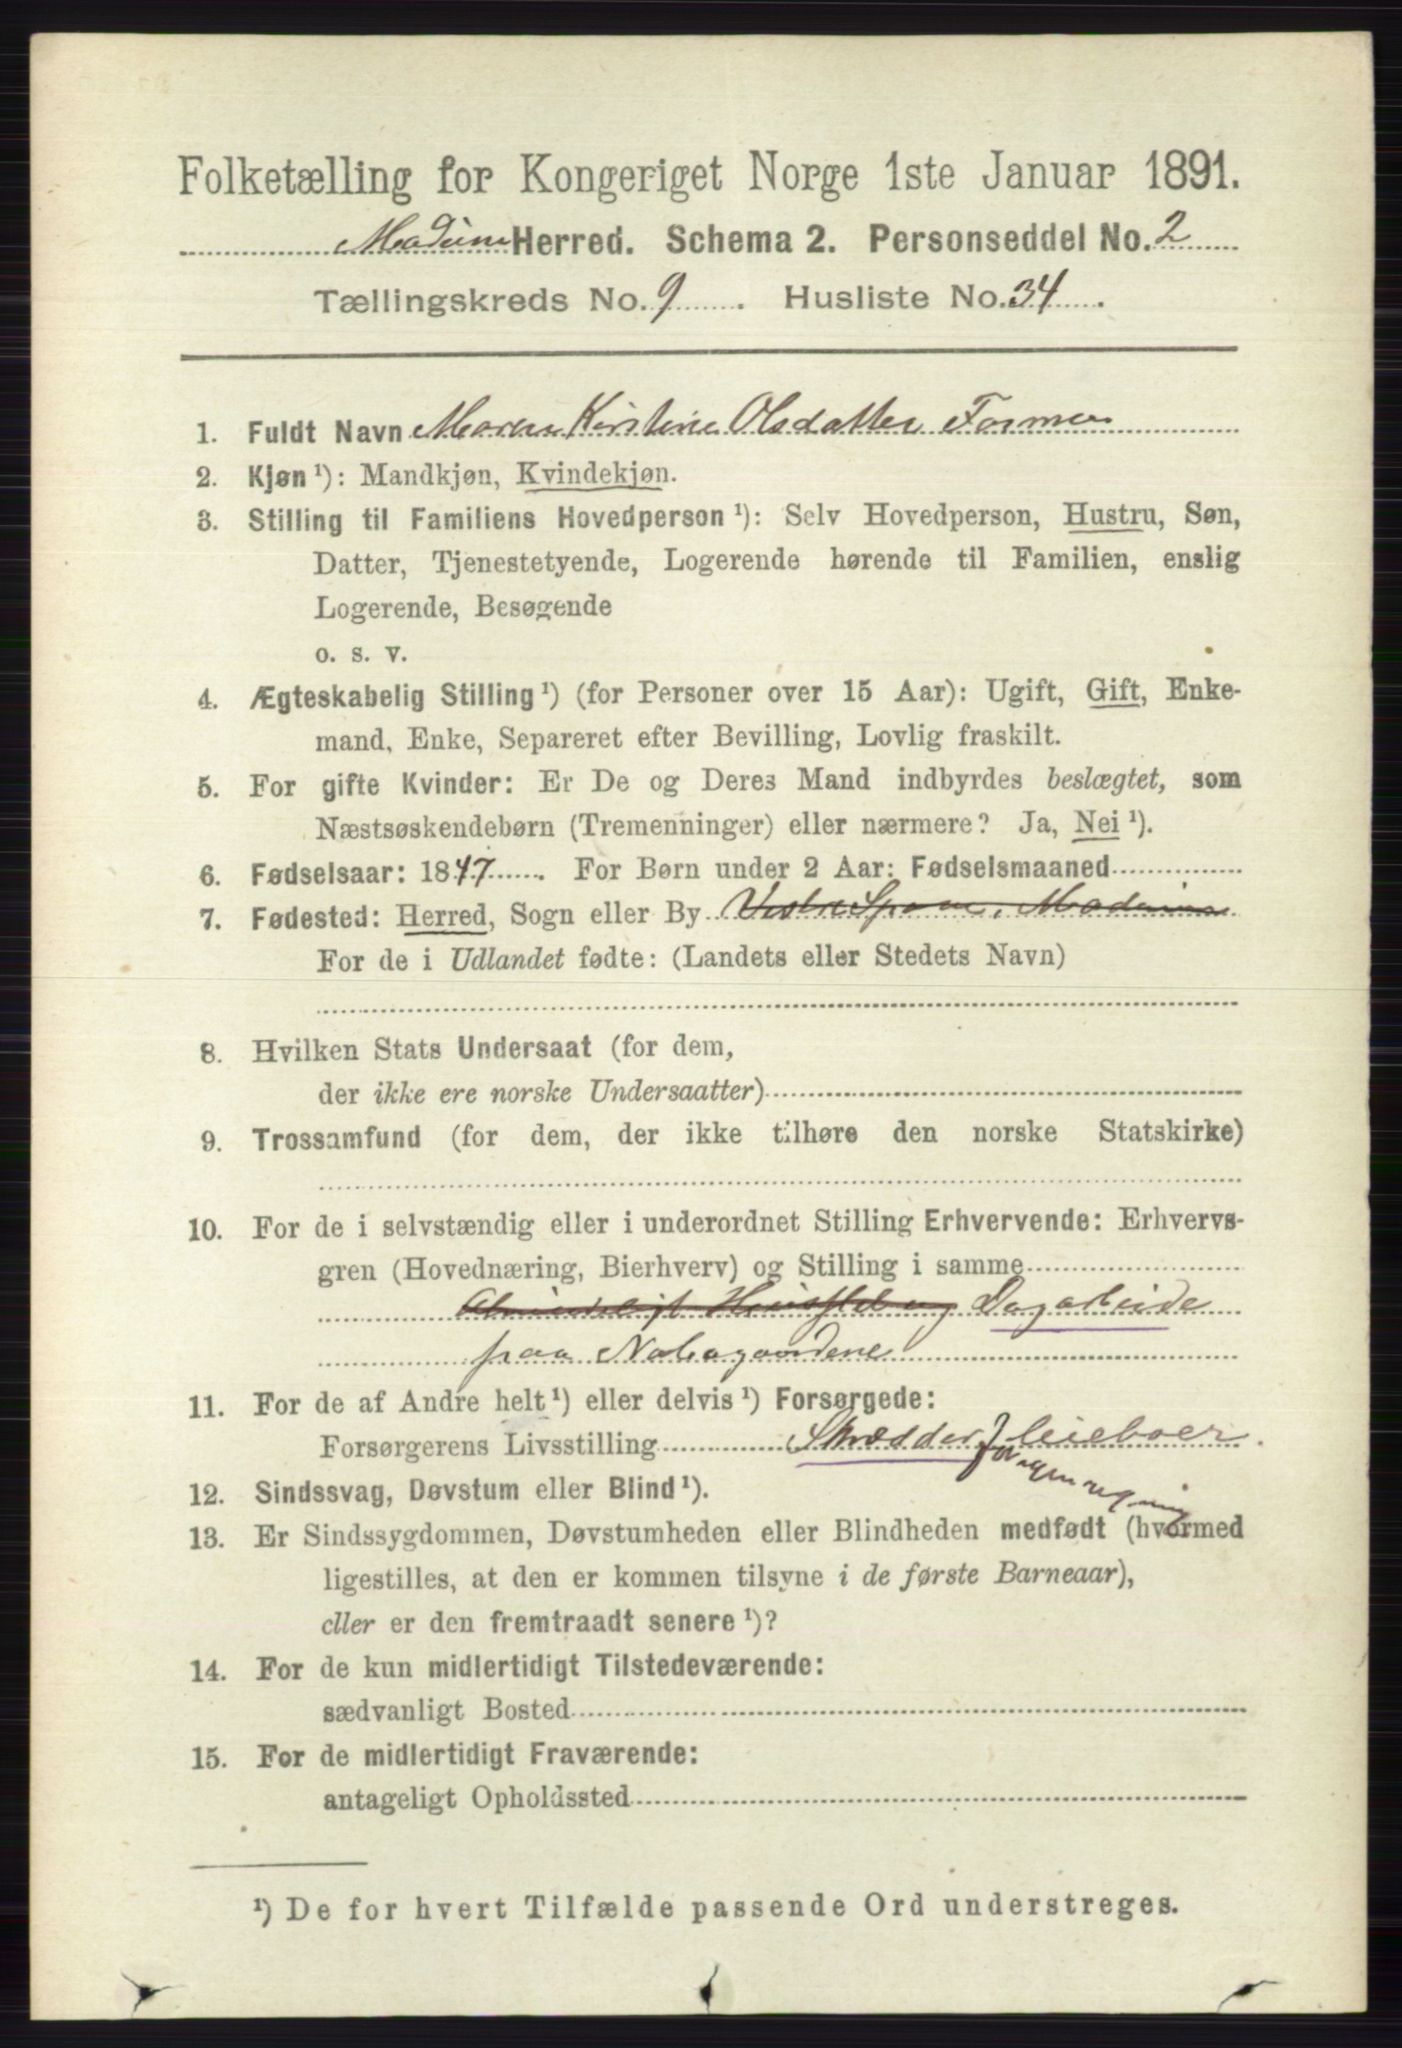 Folketælling for Kongeriget Norge 1ste Januar 1891.
Modum Herred. Schema 2. Personseddel No. 2
Tællingskreds No. 9. Husliste No. 34.
1. Fuldt Navn Maren Kirstine Olsdatter Formoe
2. Kjøn ¹): Mandkjøn, Kvindekjøn.
3. Stilling til Familiens Hovedperson ¹): Selv Hovedperson, Hustru, Søn,
Datter, Tjenestetyende, Logerende hørende til Familien, enslig
Logerende, Besøgende
o. s. v.
4. Ægteskabelig Stilling ¹) (for Personer over 15 Aar): Ugift, Gift, Enke-
mand, Enke, Separeret efter Bevilling, Lovlig fraskilt.
5. For gifte Kvinder: Er De og Deres Mand indbyrdes beslægtet, som
Næstsøskendebørn (Tremenninger) eller nærmere? Ja, Nei ¹).
6. Fødselsaar: 1847. For Børn under 2 Aar: Fødselsmaaned
7. Fødested: Herred, Sogn eller By Vestre Spone, Modum
For de i Udlandet fødte: (Landets eller Stedets Navn)
8. Hvilken Stats Undersaat (for dem,
der ikke ere norske Undersaatter)
9. Trossamfund (for dem, der ikke tilhøre den norske Statskirke)
10. For de i selvstændig eller i underordnet Stilling Erhvervende: Erhvervs-
gren (Hovednæring, Bierhverv) og Stilling i samme
Almindeligt Huusstel og Dagarbeide
paa Nabogaardene
11. For de af Andre helt ¹) eller delvis ¹) Forsørgede:
Forsørgerens Livsstilling Skrædder leieboer.
for egen regning
12. Sindssvag, Døvstum eller Blind ¹).
13. Er Sindssygdommen, Døvstumheden eller Blindheden medfødt (hvormed
ligestilles, at den er kommen tilsyne i de første Barneaar),
eller er den fremtraadt senere ¹)?
14. For de kun midlertidigt Tilstedeværende:
sædvanligt Bosted
15. For de midlertidigt Fraværende:
antageligt Opholdssted
¹) De for hvert Tilfælde passende Ord understreges.